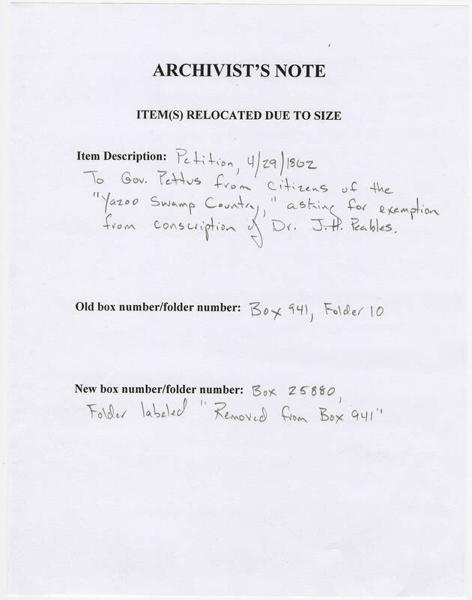 ARCHIVIST'S NOTE
ITEM(S) RELOCATED DUE TO SIZE
Item Description: Petition, 4/29/1862
To Gov. Pettus from citizens of the
"Yazoo Swamp Country," asking for exemption
from conscription of Dr. J.H. Peables.
Old box number/folder number: Box 941, Folder 10
New box number/folder number: Box 25880,
Folder labeled "Removed from Box 941"